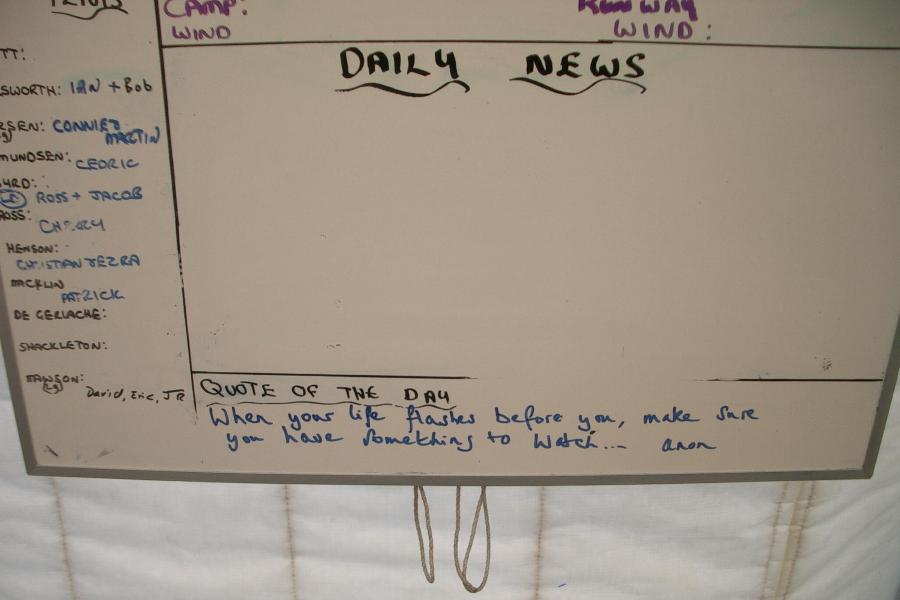 TENTS
CAMP:
WIND
RUNWAY
WIND:
DAILY NEWS
TT:
SWORTH: IAN + Bob
RSEN: CONNIE +
MARTIN
MUNDSEN: CEDRIC
YRD:
ROSS + JACOB
ROSS:
HENSON:
CHRISTIAN + EZRA
MACKLIN
PATRICK
DE GERLACHE:
SHACKLETON:
MAWSON:
(Lg)
David, Eric, JR
QUOTE OF THE DAY
When your life flashes before you, make sure
you have something to watch... anon